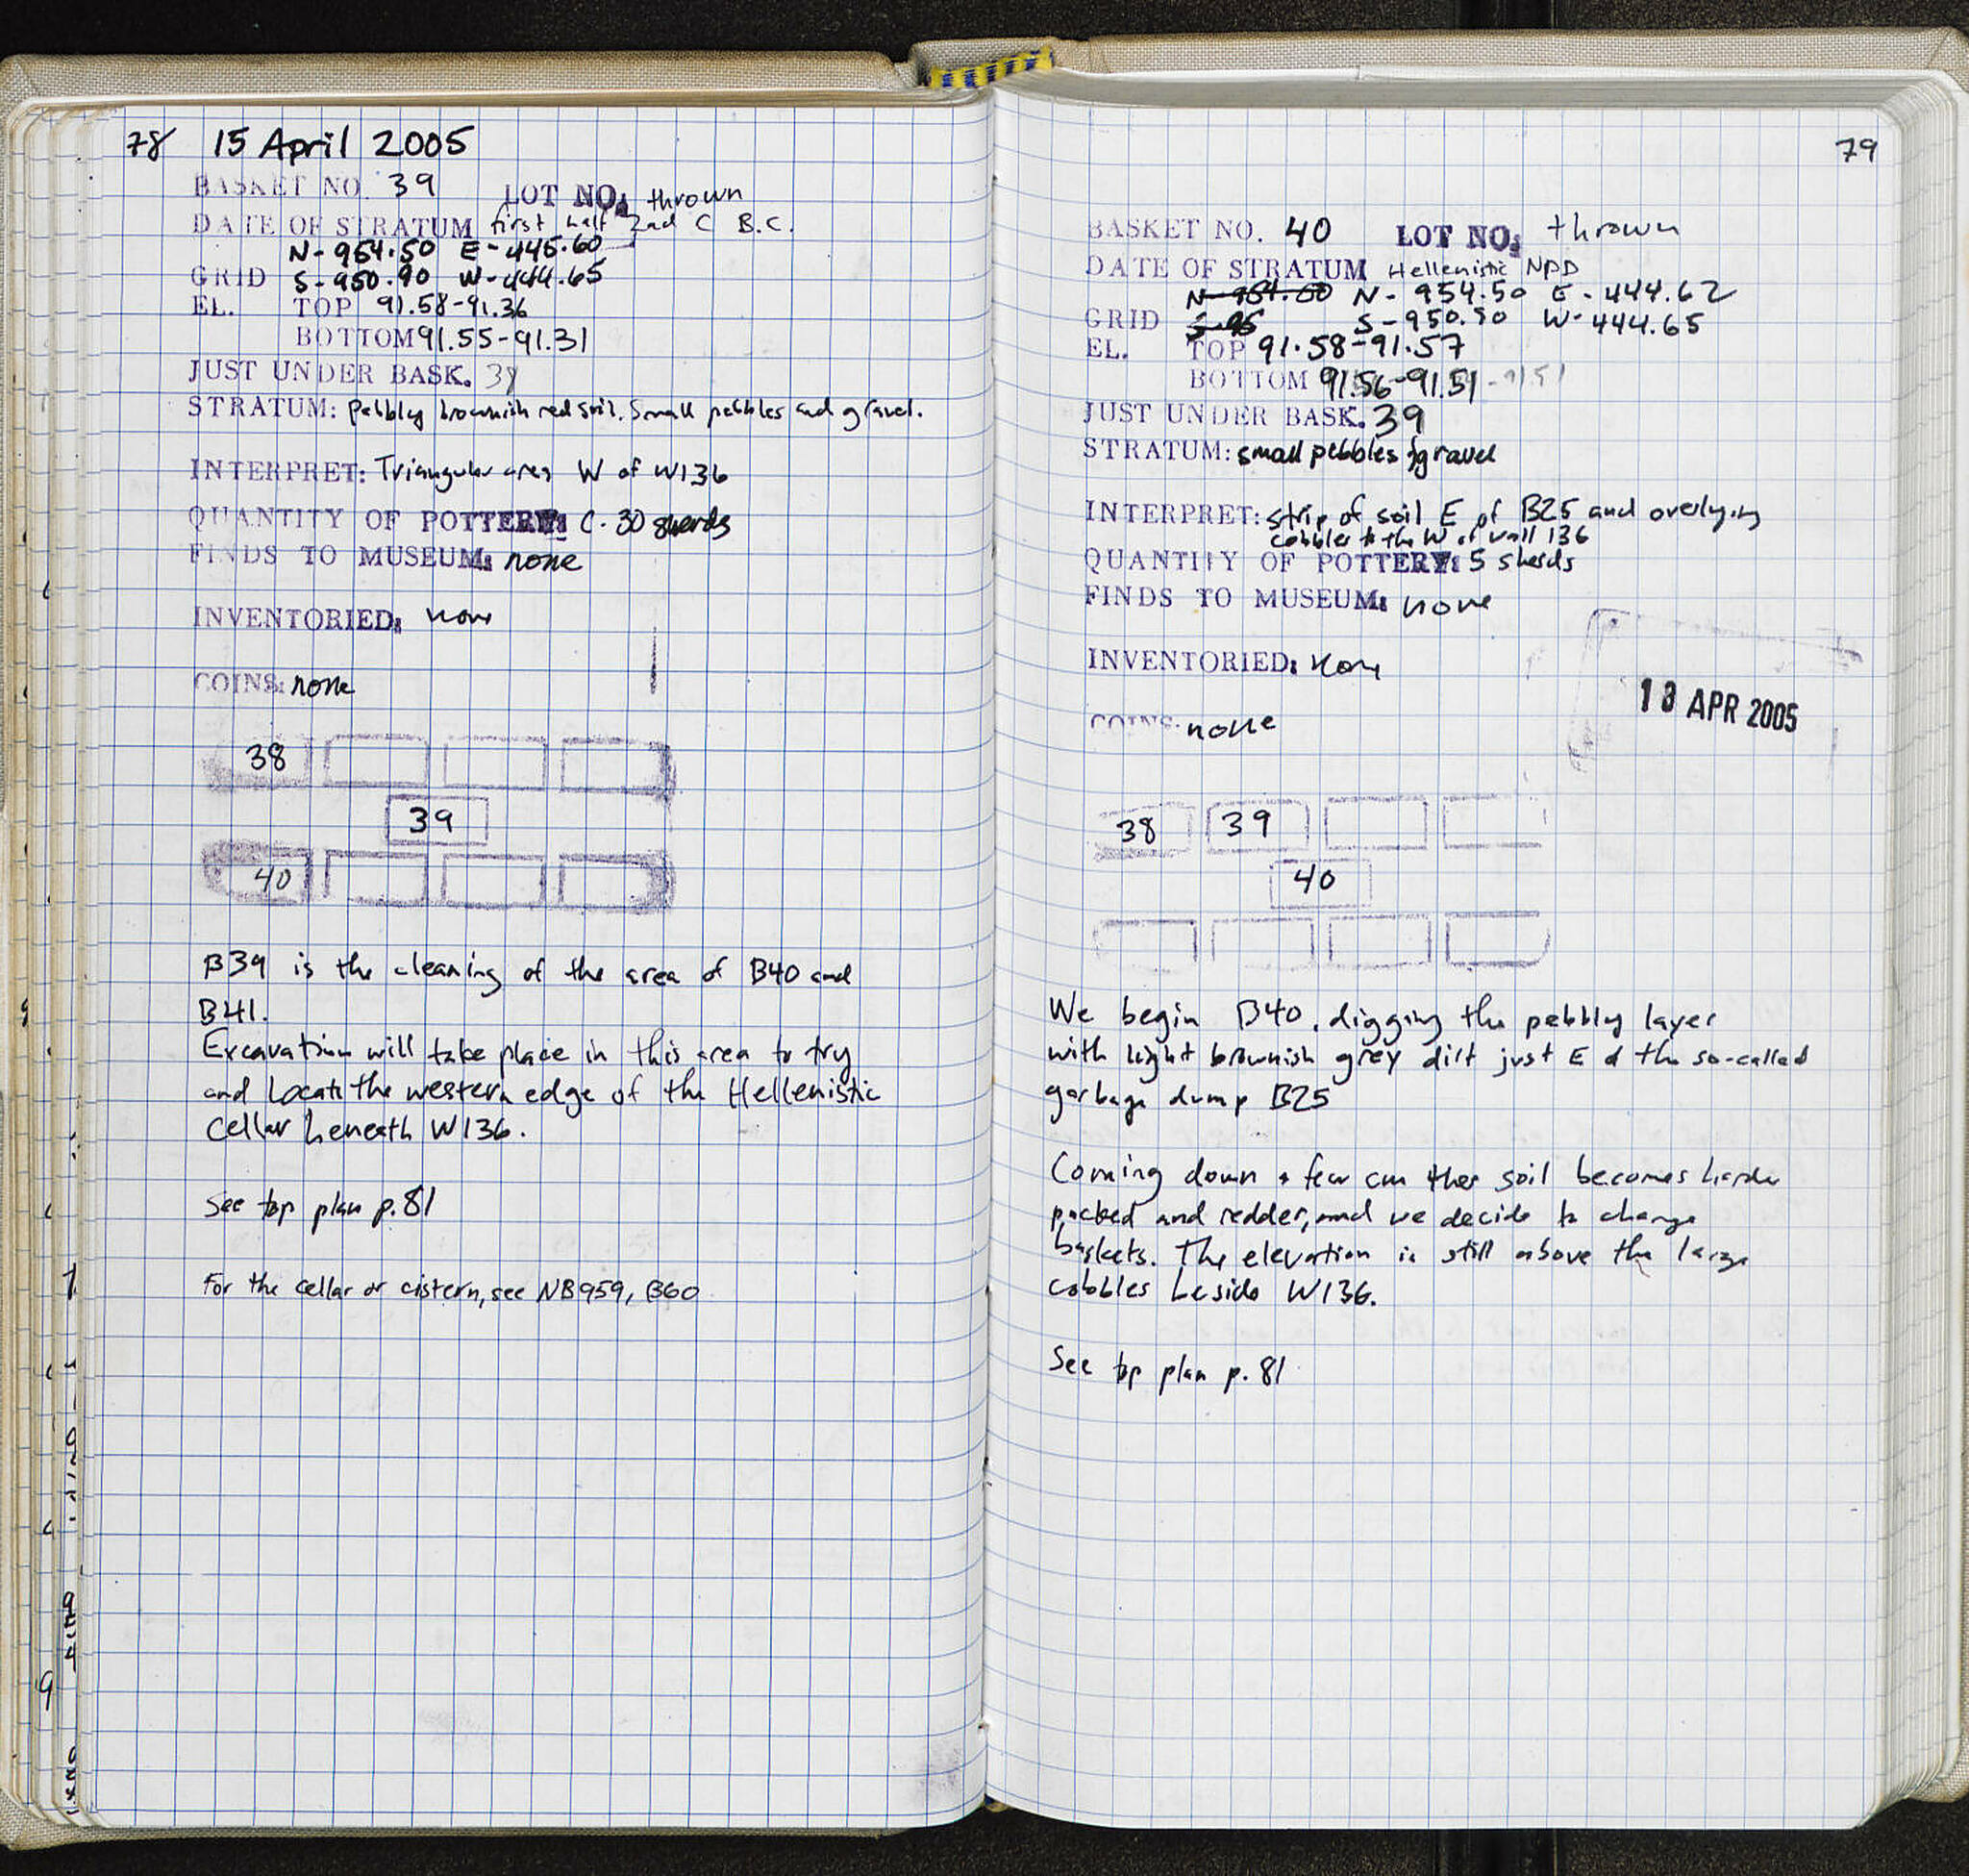 78 15 April 2005
BASKET NO. 39 LOT NO: thrown
DATE OF STRATUM first half 2nd C B.C.
N-954.50 E-445.60
GRID S-950.90 W-444.65
EL. TOP 91.58-91.36
BOTTOM 91.55-91.31
JUST UNDER BASK. 38
STRATUM: pebbly brownish red soil. Small pebbles and gravel.
INTERPRET: Triangular area W of W136
QUANTITY OF POTTERY: C. 30 sherds
FINDS TO MUSEUM: none
INVENTORIED: none
COINS: none
38
39
40
B39 is the cleaning of the area of B40 and
B41.
Excavation will take place in this area to try
and locate the western edge of the Hellenistic
cellar beneath W136.
See top plan p.81
For the cellar or cistern, see NB959, B60
79
BASKET NO. 40 LOT NO: thrown
DATE OF STRATUM Hellenistic NPD
N-954.50 E-444.62
GRID S-95 S-950.50 W-444.65
EL. TOP 91.58-91.57
BOTTOM 91.56-91.51 -91.51
JUST UNDER BASK. 39
STRATUM: small pebbles & gravel
INTERPRET: strip of soil E of B25 and overlying
cobbles to the W of wall 136
QUANTITY OF POTTERY: 5 sherds
FINDS TO MUSEUM: none
INVENTORIED: none
13 APR 2005
COINS: none
38 39
40
We begin B40, digging the pebbly layer
with light brownish grey dirt just E of the so-called
garbage dump B25
Coming down a few cm the soil becomes harder
packed and redder, and we decide to change
baskets. The elevation is still above the large
cobbles beside W136.
See top plan p.81